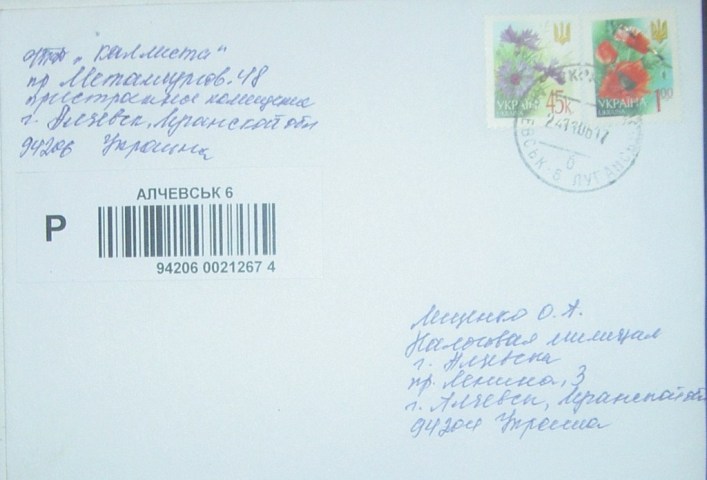 "Каллиста"
пр. Металлургов. 48
пристроенное помещение
г. Алчевск, Луганской обл
94206 Украина
АЛЧЕВСЬК 6
P
94206 0021267 4
УКРАЇНА 45к
УКРАЇНА 1.00
АЛЧЕВСЬК - 6 ЛУГАНСЬК
24 11 06 17
б
Лещенко О. А.
Налоговая милиция
г. Алчевска
пр. Ленина, 3
г. Алчевск, Луганской обл
94204 Украина